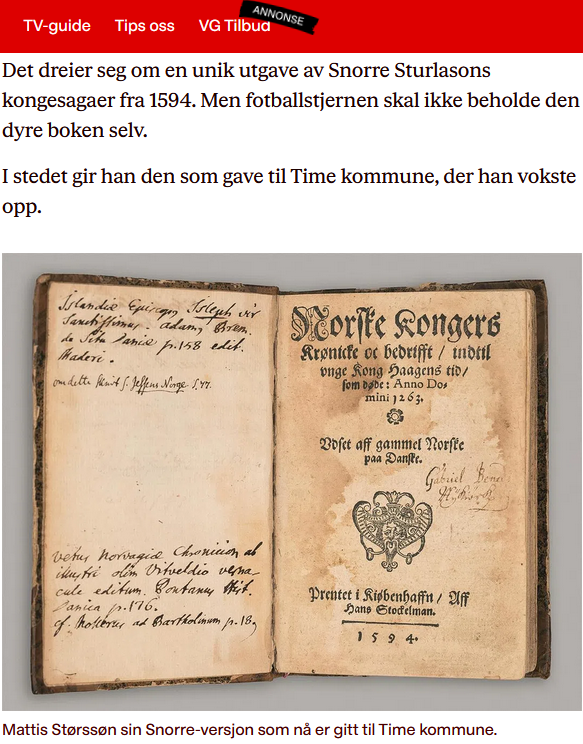 TV-guide Tips oss VG Tilbud
ANNONSE
Det dreier seg om en unik utgave av Snorre Sturlasons
kongesagaer fra 1594. Men fotballstjernen skal ikke beholde den
dyre boken selv.
I stedet gir han den som gave til Time kommune, der han vokste
opp.
Islandiæ Episcop Isleph vir
Sanctissimus. adamus Brem.
de Situ Daniæ p. 158 edit.
Maderi.
om dette skrift s. Jessens Norge S. 77.
vetus Norvagiæ Chronicon ab
illustri olim Vitveldio verna-
cule editum. Pontanus Hist.
Danica p. 176.
cf. ad Bartholinum p. 18
Norske Kongers
Krønicke oc bedrifft / indtil
vnge Kong Haagens tid /
som døde: Anno Do-
mini 1263.
Vdset aff gammel Norske
paa Danske.
Gabriel
Prentet i Kiøbenhaffn / Aff
Hans Stockelman.
1594.
Mattis Størssøn sin Snorre-versjon som nå er gitt til Time kommune.